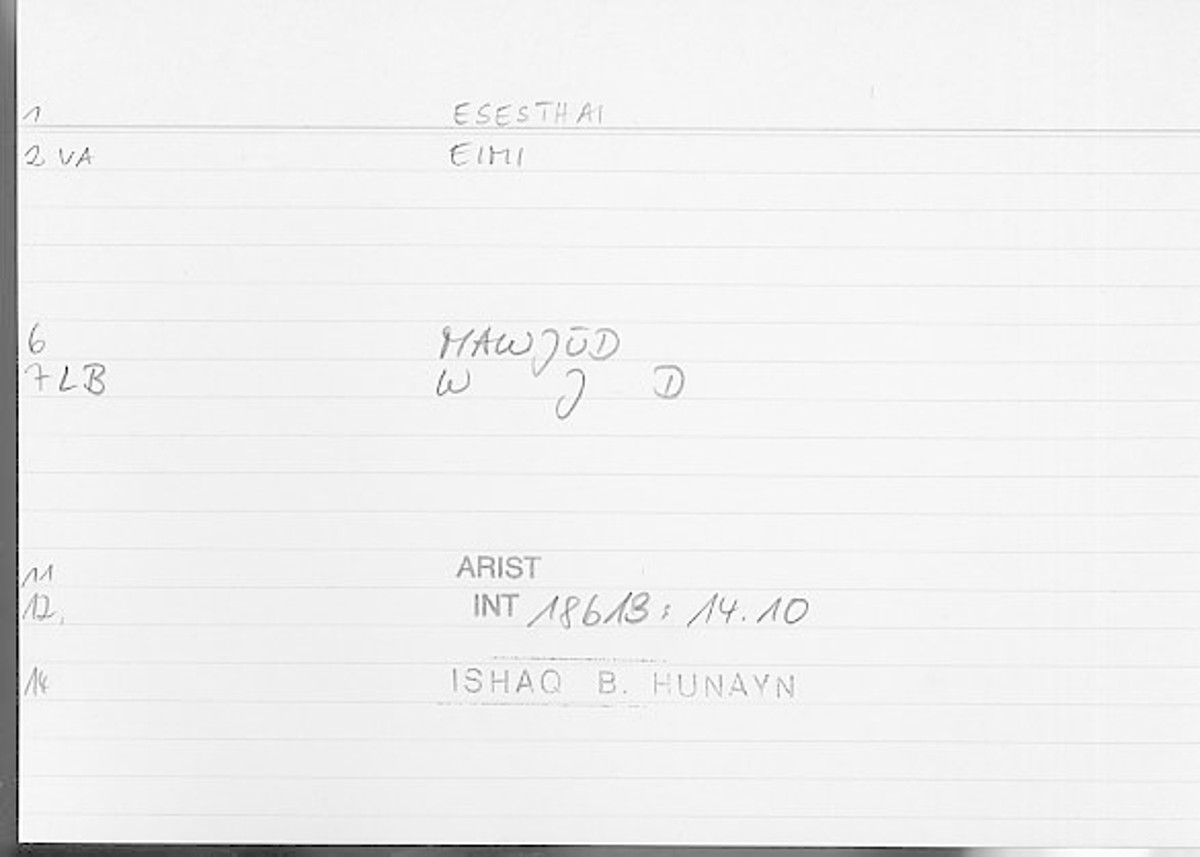 1 ESESTHAI
2 VA EIMI
6 MAWJŪD
7 LB W J D
11 ARIST
12, INT 18613: 14.10
14 ISHAQ B. HUNAYN